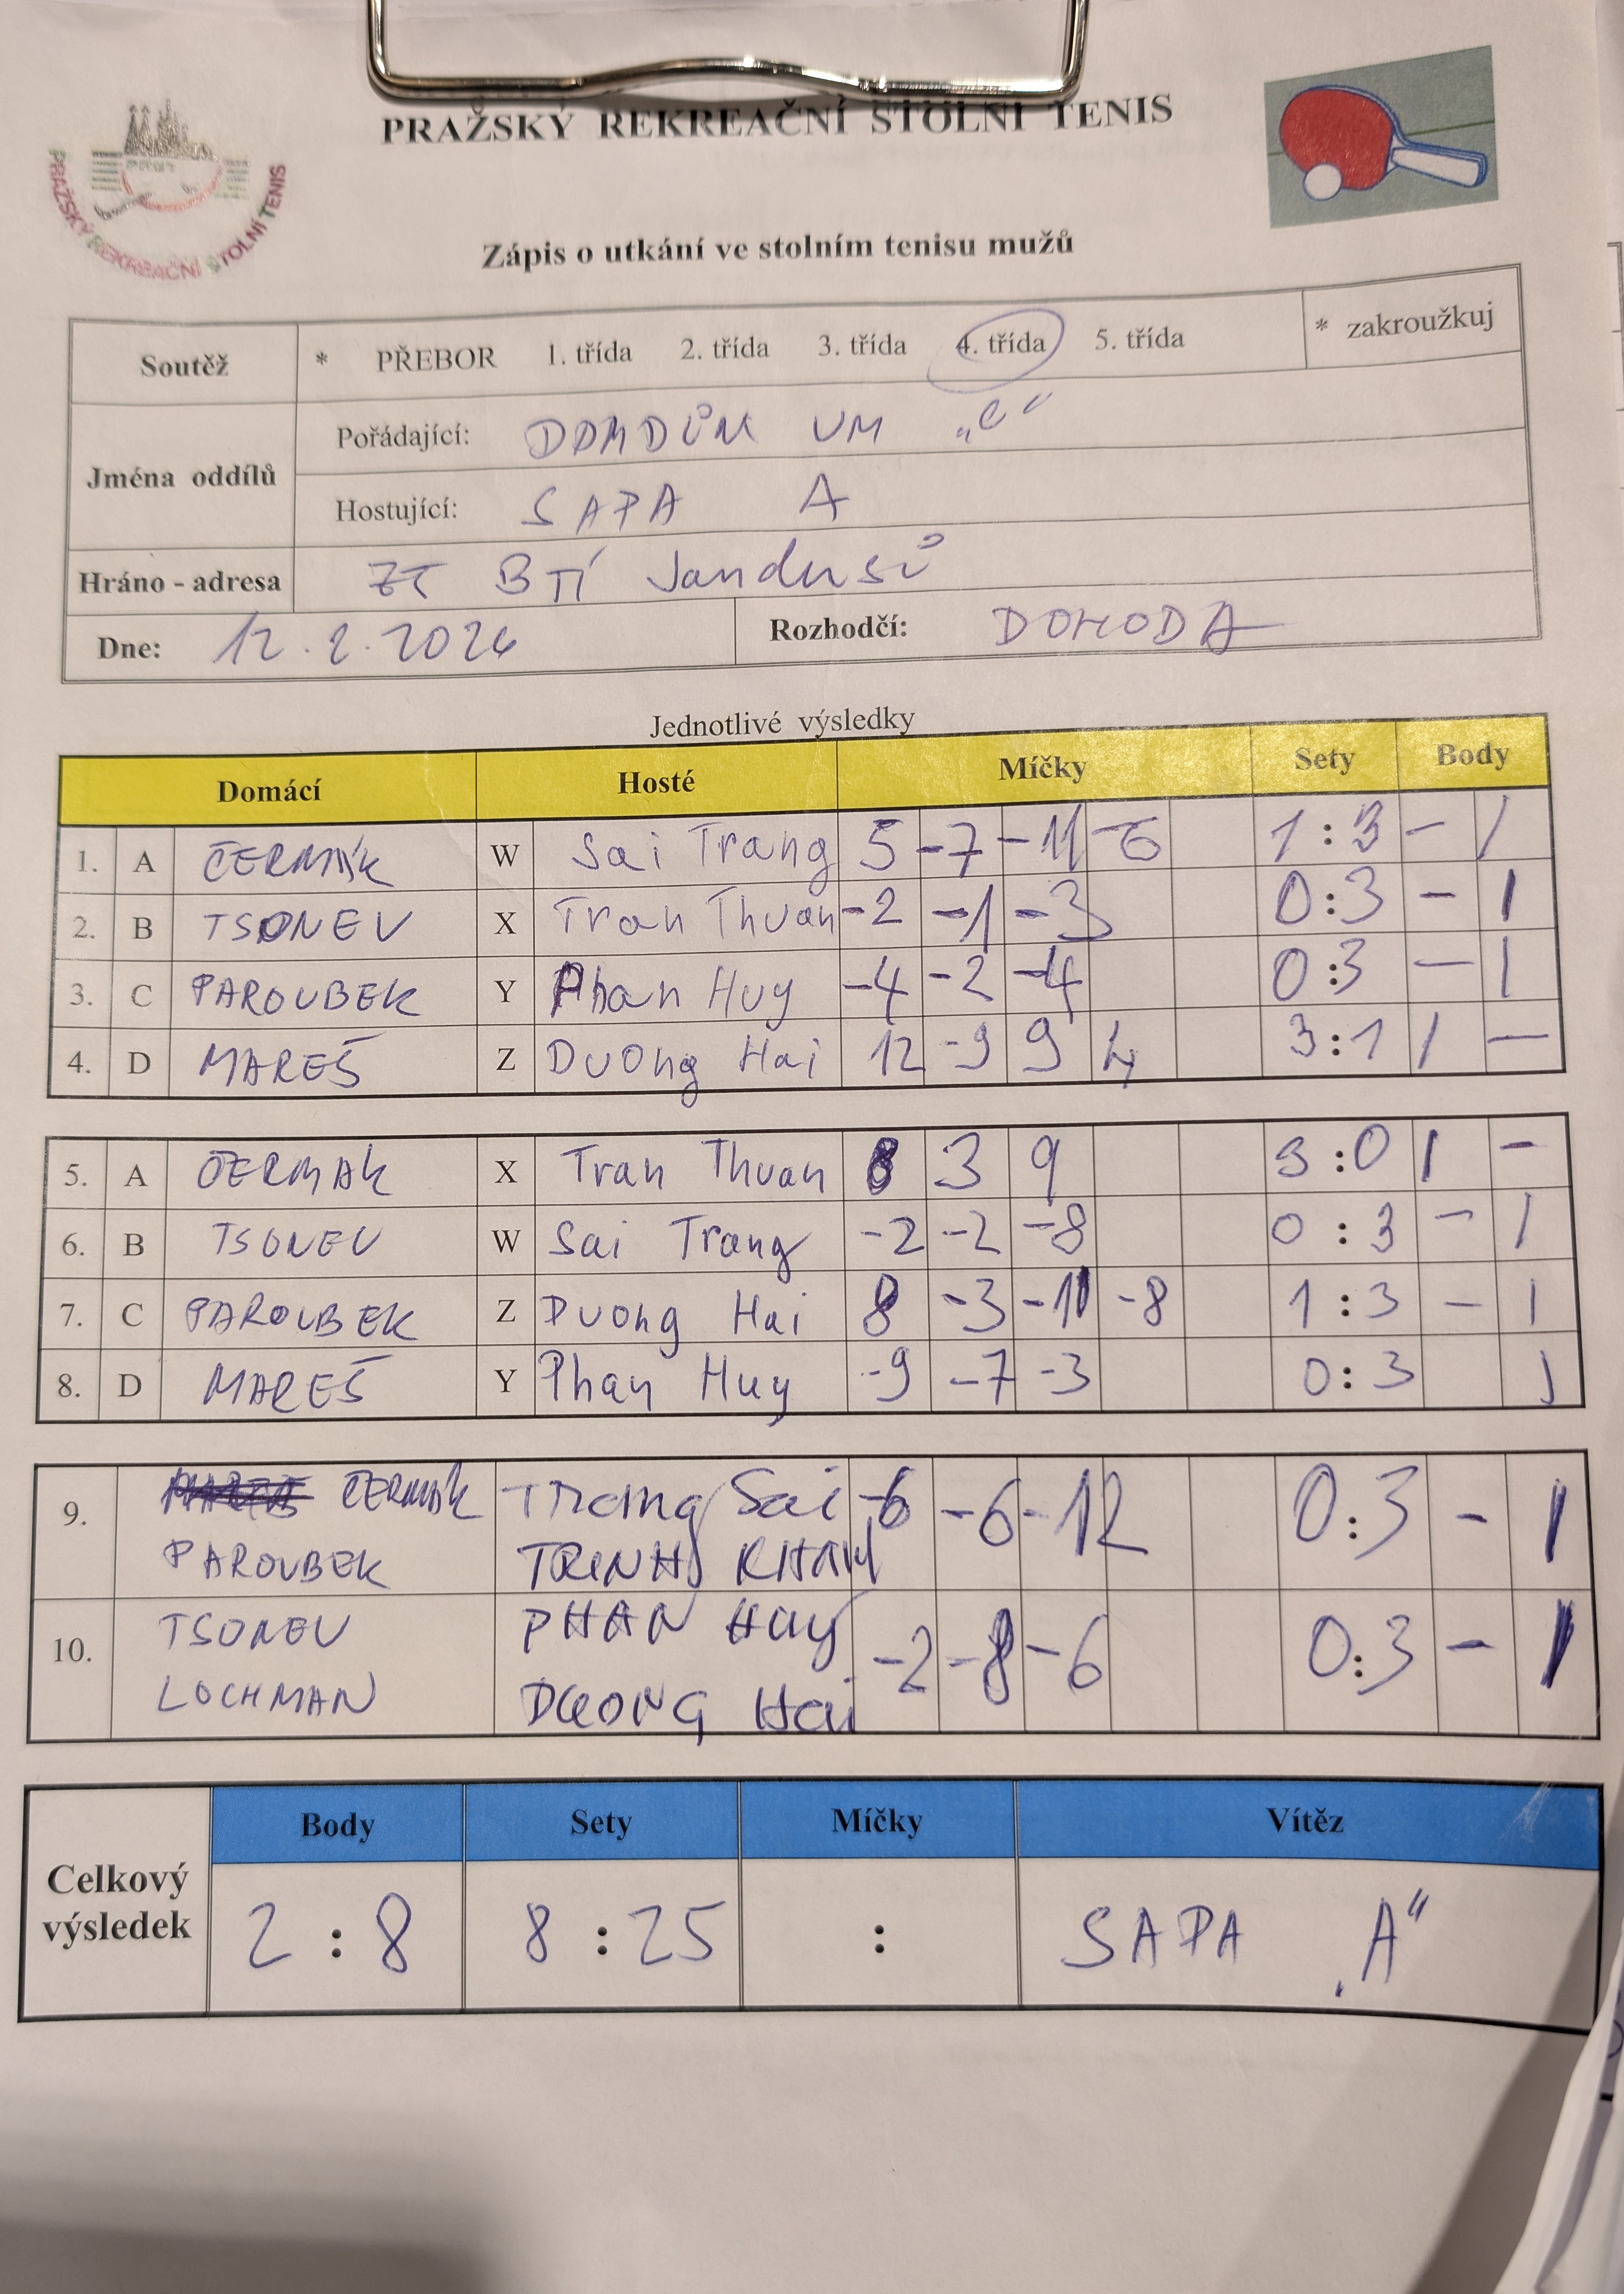 PRAŽSKÝ REKREAČNÍ STOLNÍ TENIS
PRAŽSKÝ REKREAČNÍ STOLNÍ TENIS
Zápis o utkání ve stolním tenisu mužů
Soutěž * PŘEBOR 1. třída 2. třída 3. třída 4. třída 5. třída * zakroužkuj
Jména oddílů
Pořádající: DOMDŮM VM „C“
Hostující: SAPA A
Hráno - adresa ZŠ BTÍ Jandusů
Dne: 12.2.2026 Rozhodčí: DOHODA
Jednotlivé výsledky
Domácí Hosté Míčky Sety Body
1. A ČERMÁK W Sai Trang 5 -7 -11 -6 1:3 - 1
2. B TSONEV X Tran Thuan -2 -1 -3 0:3 - 1
3. C PAROUBEK Y Phan Huy -4 -2 -4 0:3 - 1
4. D MAREŠ Z Duong Hai 12 -9 9 4 3:1 1 -
5. A ČERMAK X Tran Thuan 8 3 9 3:0 1 -
6. B TSONEV W Sai Trang -2 -2 -8 0:3 - 1
7. C PAROUBEK Z Duong Hai 8 -3 -11 -8 1:3 - 1
8. D MAREŠ Y Phan Huy -9 -7 -3 0:3 1
9. ČERMÁK Trang Sai -6 -6 -12 0:3 - 1
PAROUBEK TRINH KHANH
10. TSONEV PHAN HUY -2 -8 -6 0:3 - 1
LOCHMAN DUONG Hai
Body Sety Míčky Vítěz
Celkový výsledek 2:8 8:25 : SAPA „A“